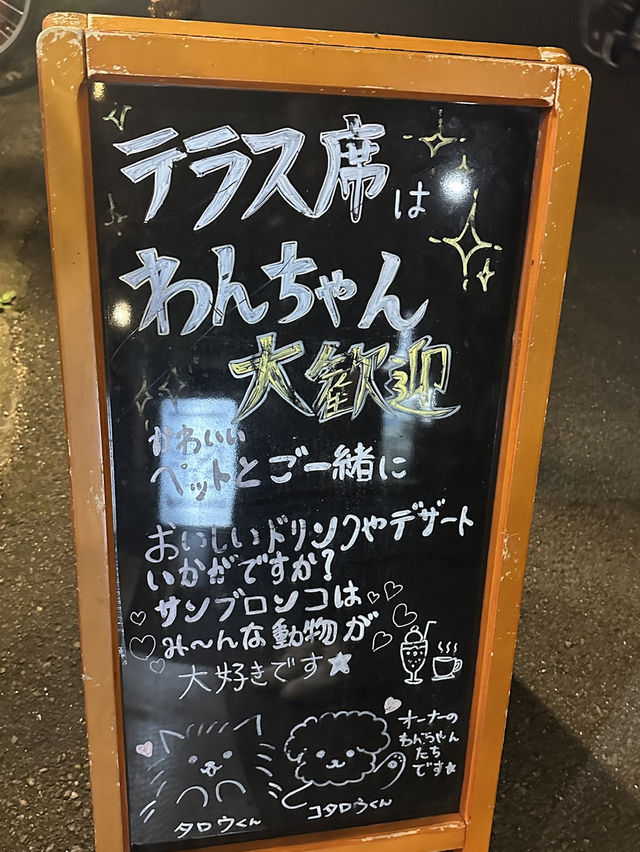 テラス席は
わんちゃん
大歓迎
かわいい
ペットとご一緒に
おいしいドリンクやデザート
いかがですか?
サンブロンコは
み〜んな動物が
大好きです★
オーナーの
わんちゃん
たち
です★
タロウくん
コタロウくん